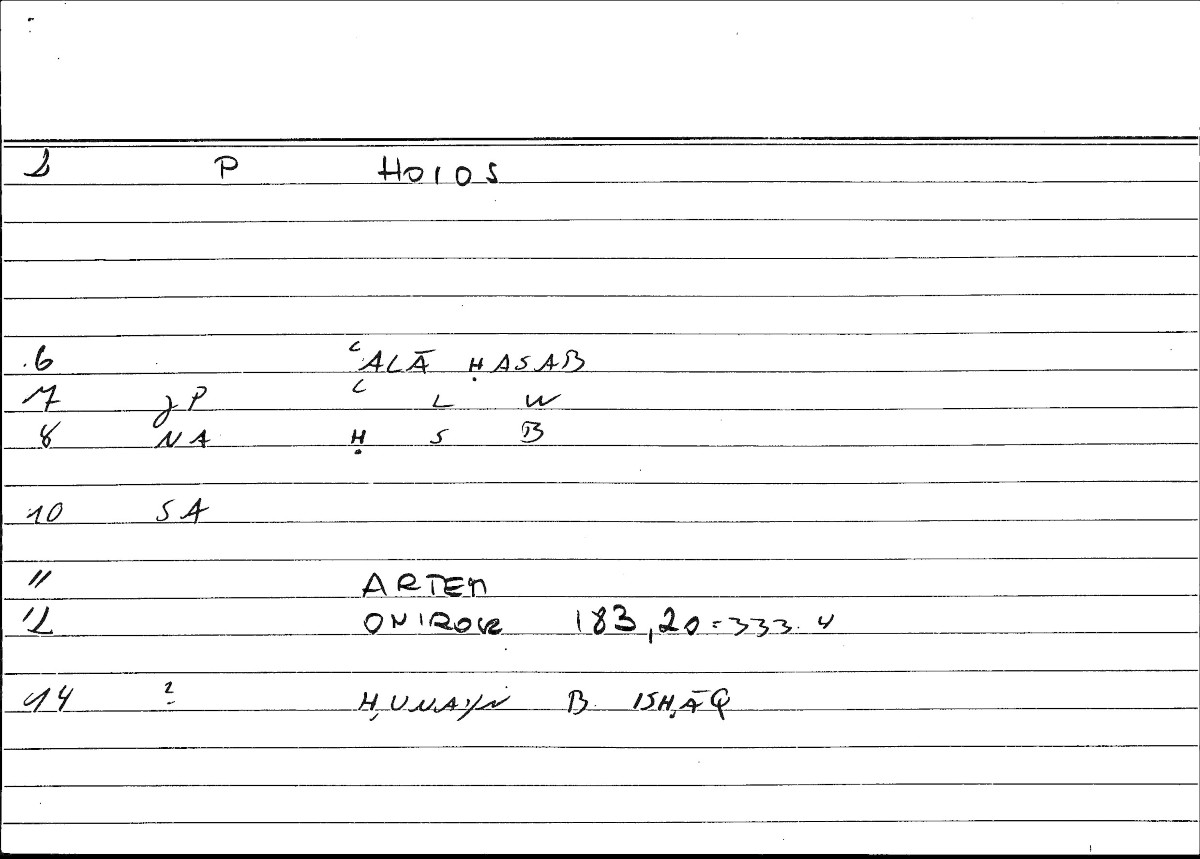 2 P HOIOS
6 ʿALĀ ḤASAB
7 JP ʿ L W
8 NA Ḥ S B
10 SA
11 ARTEM
12 ONIROCR 183,20=333.4
14 2 ḤUNAYN B ISḤĀQ